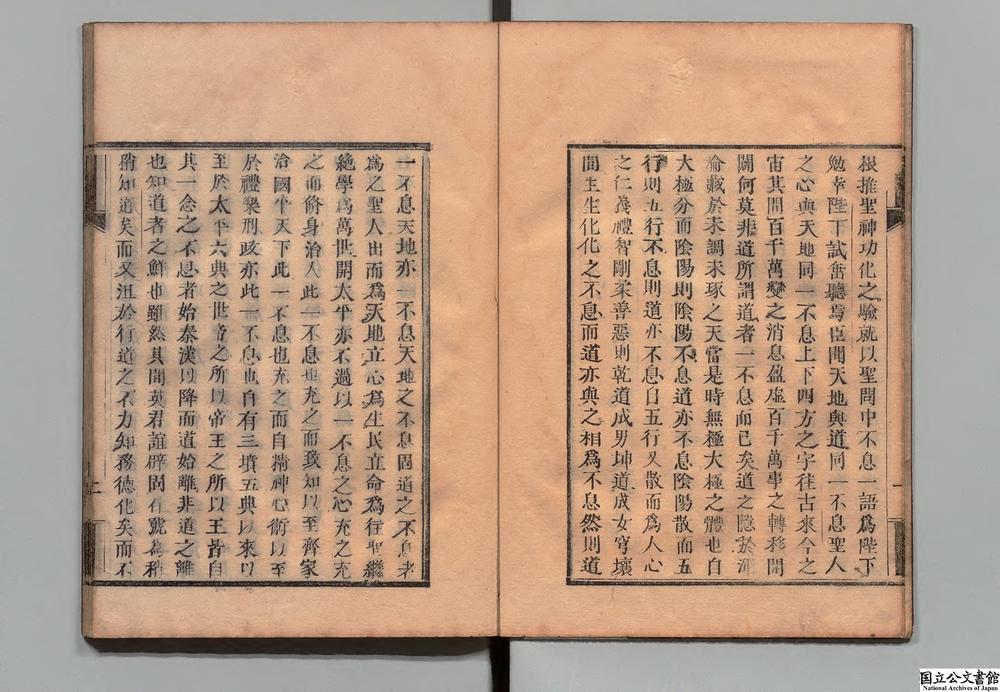 根推聖神功化之驗就以聖問中不息一語爲陛下
勉幸陛下試畱聽焉臣聞天地與道同一不息聖人
之心與天地同一不息上下四方之宇往古來今之
宙其間百千萬變之消息盈虛百千萬事之轉移闔
闢何莫非道所謂道者一不息而已矣道之隱於渾
淪藏於未雕未琢之天當是時無極太極之體也自
太極分而陰陽則陰陽不息道亦不息陰陽散而五
行則五行不息則道亦不息自五行又散而爲人心
之仁義禮智剛柔善惡則乾道成男坤道成女穹壤
間生生化化之不息而道亦與之相爲不息然則道
一不息天地亦一不息天地之不息固道之不息者
爲之聖人出而爲天地立心爲生民立命爲往聖繼
絶學爲萬世開太平亦不過以一不息之心充之充
之而脩身治人此一不息也充之而致知以至齊家
治國平天下此一不息也充之而自精神心術以至
於禮樂刑政亦此一不息也自有三墳五典以來以
至於太平六典之世帝之所以帝王之所以王皆自
其一念之不息者始秦漢以降而道始離非道之離
也知道者之鮮也雖然其間英君誼辟固有號爲稍
稍知道矣而又沮於行道之不力知務德化矣而不
一
二
国立公文書館
National Archives of Japan